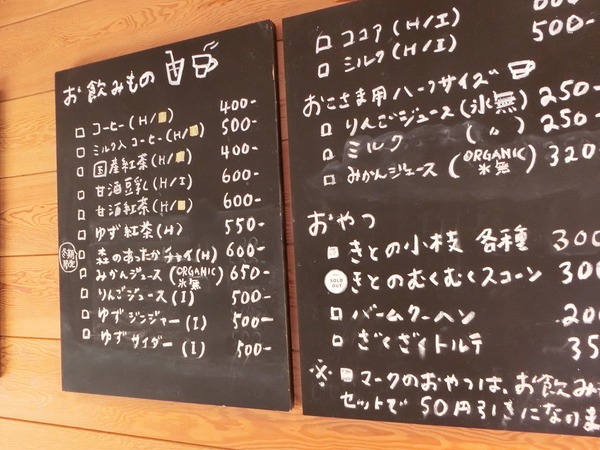 お飲みもの
コーヒー(H/ 400-
ミルク入コーヒー(H/ 500-
国産紅茶(H/ 400-
甘酒豆乳(H/I) 600-
甘酒紅茶(H/ 600-
ゆず紅茶(H) 550-
冬期限定
森のあったかチャイ(H) 600-
みかんジュース(ORGANIC 氷無) 650-
りんごジュース(I) 500-
ゆずジンジャー(I) 500-
ゆずサイダー(I) 500-
ココア(H/I)
ミルク(H/I) 500-
おこさま用ハーフサイズ
りんごジュース(氷無) 250-
ミルク(〃) 250-
みかんジュース(ORGANIC 氷無) 320
おやつ
きとの小枝 各種 300
SOLD OUT
きとのむくむくスコーン 300
バームクーヘン 200
ざくざくトルテ 35
※ マークのおやつは、お飲み
セットで 50円引きになりま